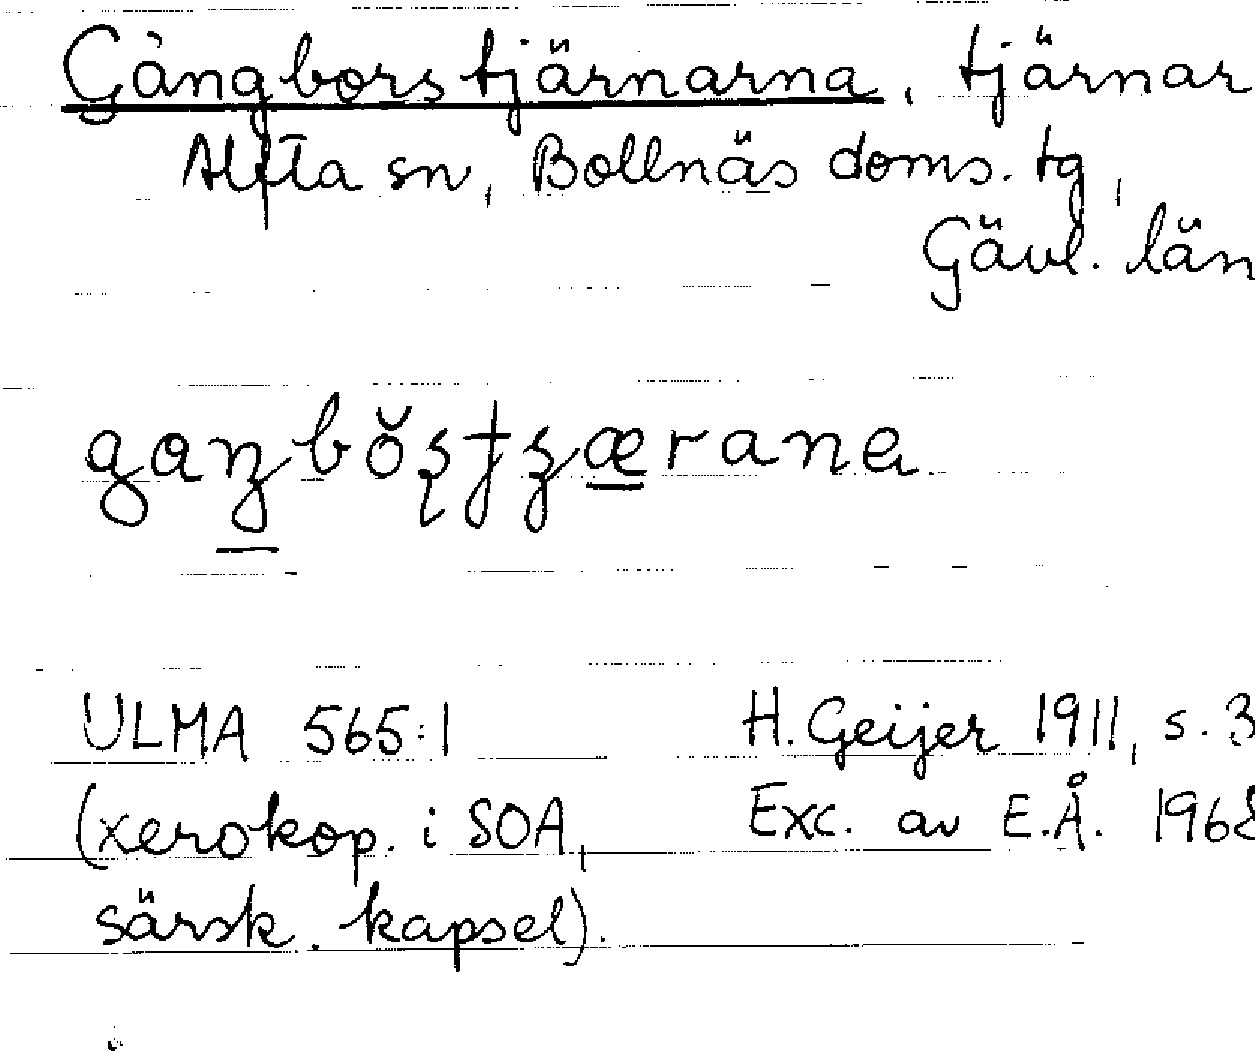 Gångborstjärnarna, tjärnar
Alfta sn, Bollnäs doms. tg,
Gävl. län
ULMA 565:1
H. Geijer 1911, s. 3
(xerokop. i SOA,
Exc. av E.Å. 1968
särsk. kapsel).